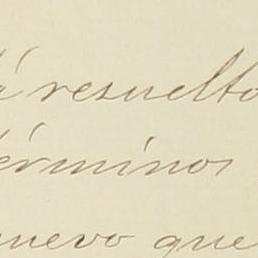 á resuelto
términos
nuevo que